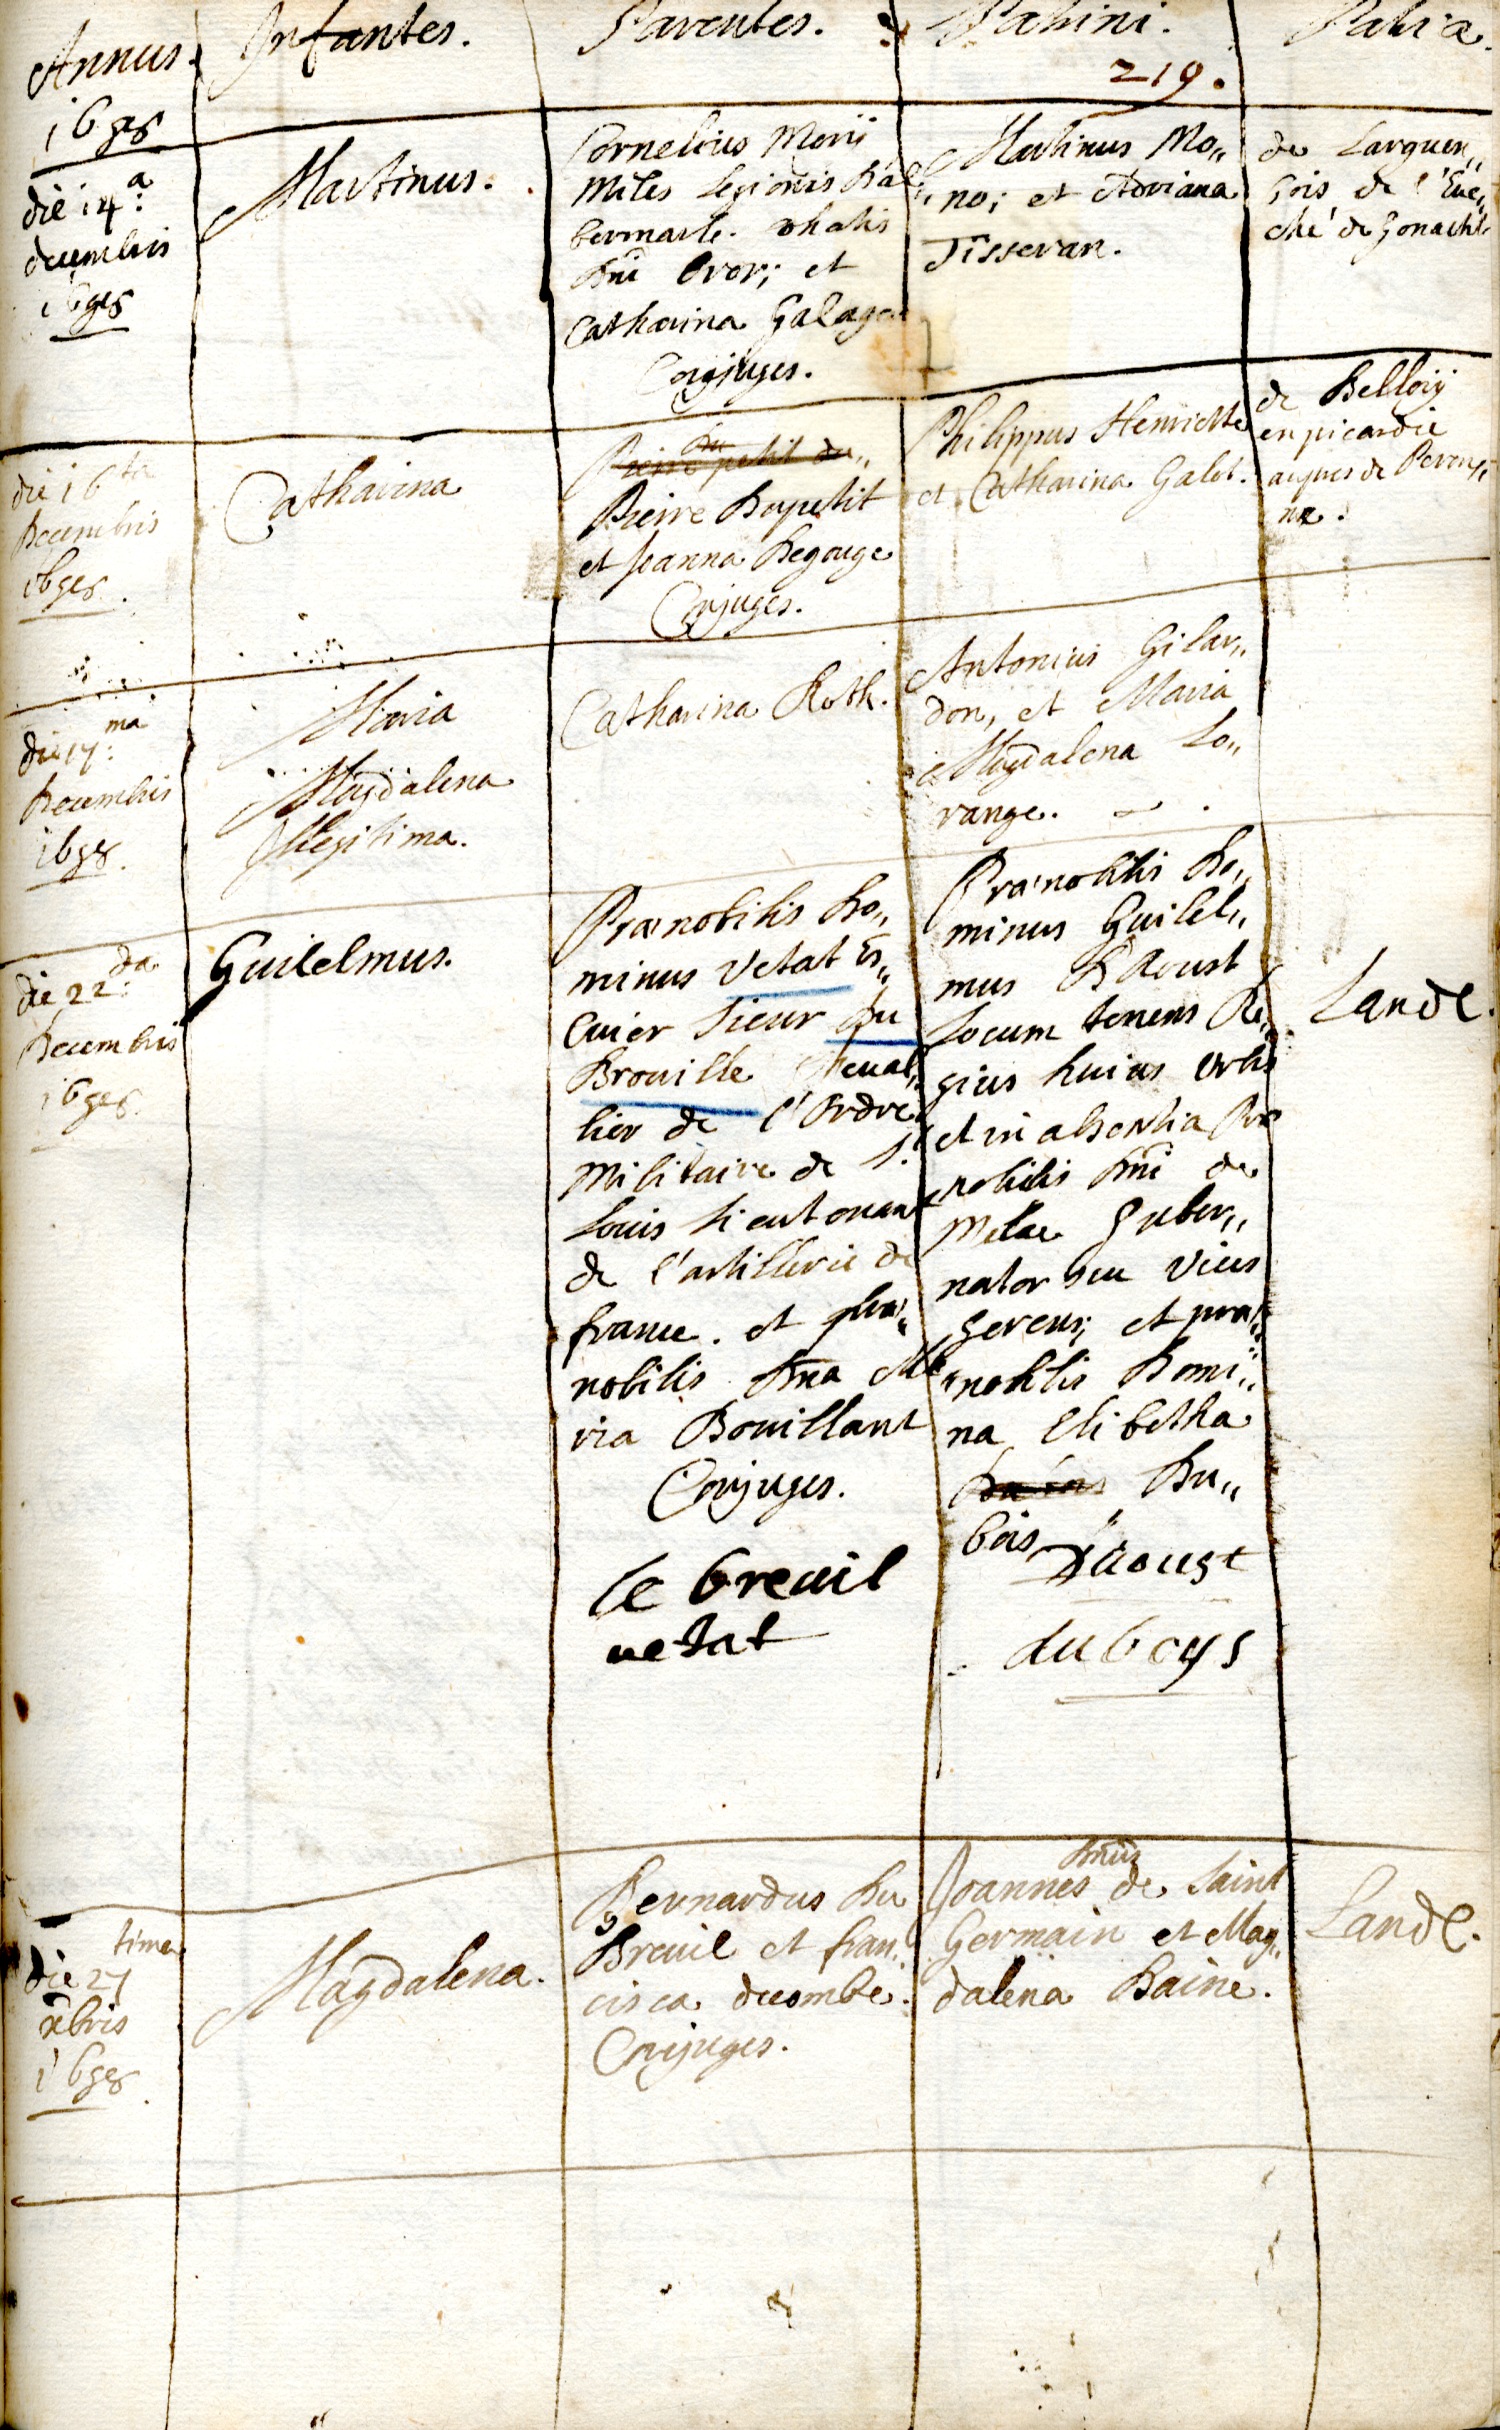 Annus. Infantes. Parentes. Patrini. Patria.
219.
die 14.a
decembris
Martinus.
Cornelius Morii
miles legionis D'al„
bermarle.
Dni Bror; et
Catharina Galage
Conjuges.
Martinus Mo„
no; et Adriana
Tisseran.
de Larguen„
gois de l'Eue„
ché de
die 16 ta
Decembris
Catharina
du
Pierre petit du„
Pierre Dupetit
et Joanna Begouge
Conjuges.
Philippus Henriette
et Catharina Galot.
de Belloiy
en picardie
aupres de Peron„
ne.
die 17.ma
Decembris
Maria
Magdalena
Illegitima.
Catharina Roth.
Antonius Gilar„
don, et Maria
Magdalena Lo„
range.
die 22.da
Decembris
Guilelmus.
Prænobilis Do„
minus Vetat Es„
cuier Sieur du
Brouille Cheual„
lier de l'Ordre
Militaire de St
Louis Lieutenant
de l'artillerie de
france. et præ„
nobilis Dna Ma
ria Bouillant
Conjuges.
le breuil
uetat
Prænobilis Do„
minus Guilel„
mus D'Aoust
Locum tenens Re„
gius huius Urbis
et in absentia Præ
nobilis Dni de
Melac Guber„
nator seu Vices
gerens; et præ„
nobilis Domi„
na Elibetha
Du„
bois
D'aoust
duboys
Landl.
die 27 tima
xbris
Magdalena.
Bernardus Du
Breuil et fran„
cisca decombe.
Conjuges.
Dnus
Joannes de Saint
Germain et Mag„
dalena Baine.
Landl.